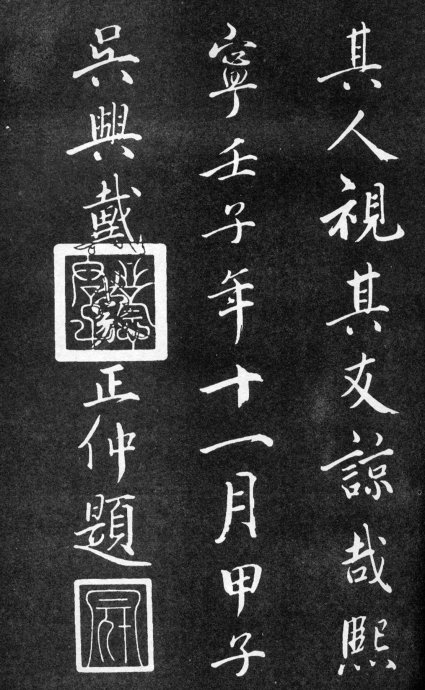 其人視其友諒哉熙
寧壬子年十一月甲子
吳興戴蒙正仲題